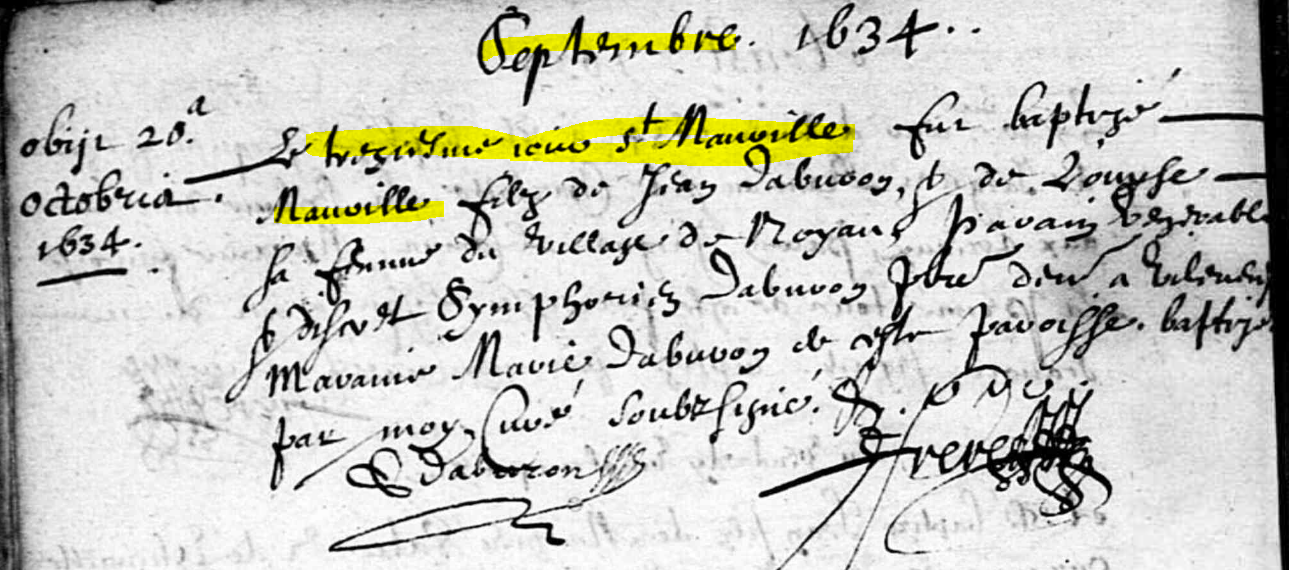 Septembre. 1634..
obijt 20.a
octobris.
1634.
Le treziesme iour st Mauville fut baptizé
Mauville filz de Jean Daburon, & de Louyse
sa femme du village de Noyans Parain venerable
& discret Symphorien Daburon pbre demt a
Maraine Marie Daburon de ceste paroisse. baptizé
par moy Curé soubzsigné.
S Daburon
Frere